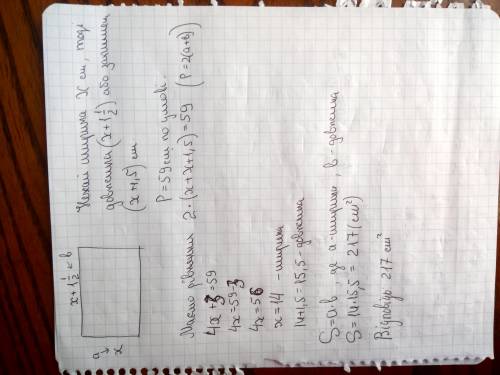 x+1 1/2 < b
a →
x
Нехай ширина x см, тоді
довжина (x+1 1/2) або запишем
(x+1,5) см
P = 59 см по умові.
Маємо рівняння 2·(x+x+1,5)=59 (P=2(a+b))
4x+3=59
4x=59-3
4x=56
x=14 - ширина
14+1,5=15,5 - довжина
S=a·b, де a-ширина, b-довжина
S=14·15,5=217(см²)
Відповідь 217 см²